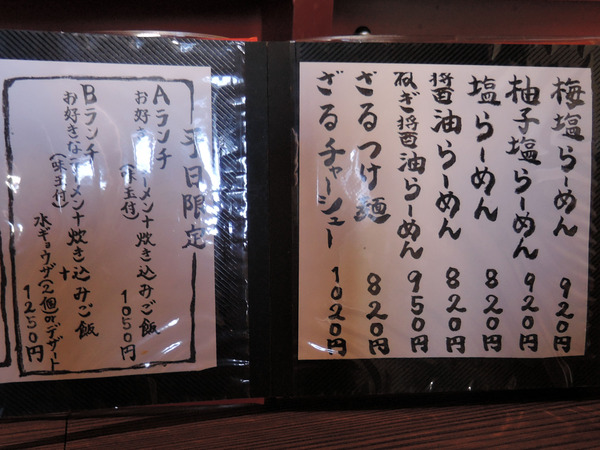 梅塩らーめん 920円
柚子塩らーめん 920円
塩らーめん 820円
醤油らーめん 820円
ねぎ醤油らーめん 950円
ざるつけ麺 820円
ざるチャーシュー 1020円
平日限定
Aランチ
お好きなラーメン+炊き込みご飯
(味玉付) 1050円
Bランチ
お好きなラーメン+炊き込みご飯
(味玉付)
+
水ギョウザ(2個)orデザート
1250円